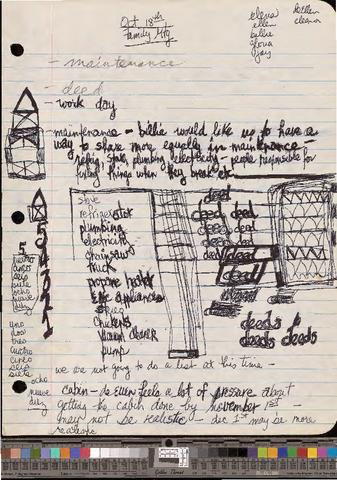 Oct 18th
Family Mtg
elena
ellen
billie
gloria
joy
deEllen
eleanor
- maintenance
- deed
- work day
- maintenance - billie would like us to have a
way to share more equally in maintenance -
refrig, stove, plumbing, electricity - people responsible for
fixing things when they break etc.
stove
refrigerator
plumbing
electricity
chainsaws
truck
propane heater
appliances
chickens
pump
deed
deed deed
deed deed
deed deed
deed deed
deed
deeds
deeds deeds
5
cuatro
cinco
seis
siete
ocho
nueve
diez
uno
dos
tres
cuatro
cinco
seis
siete
ocho
nueve
diez
5
4
3
2
1
we are not going to do a list at this time -
cabin - deEllen feels a lot of pressure about
getting the cabin done by november 1st -
may not be realistic - dec 1st may be more
realistic